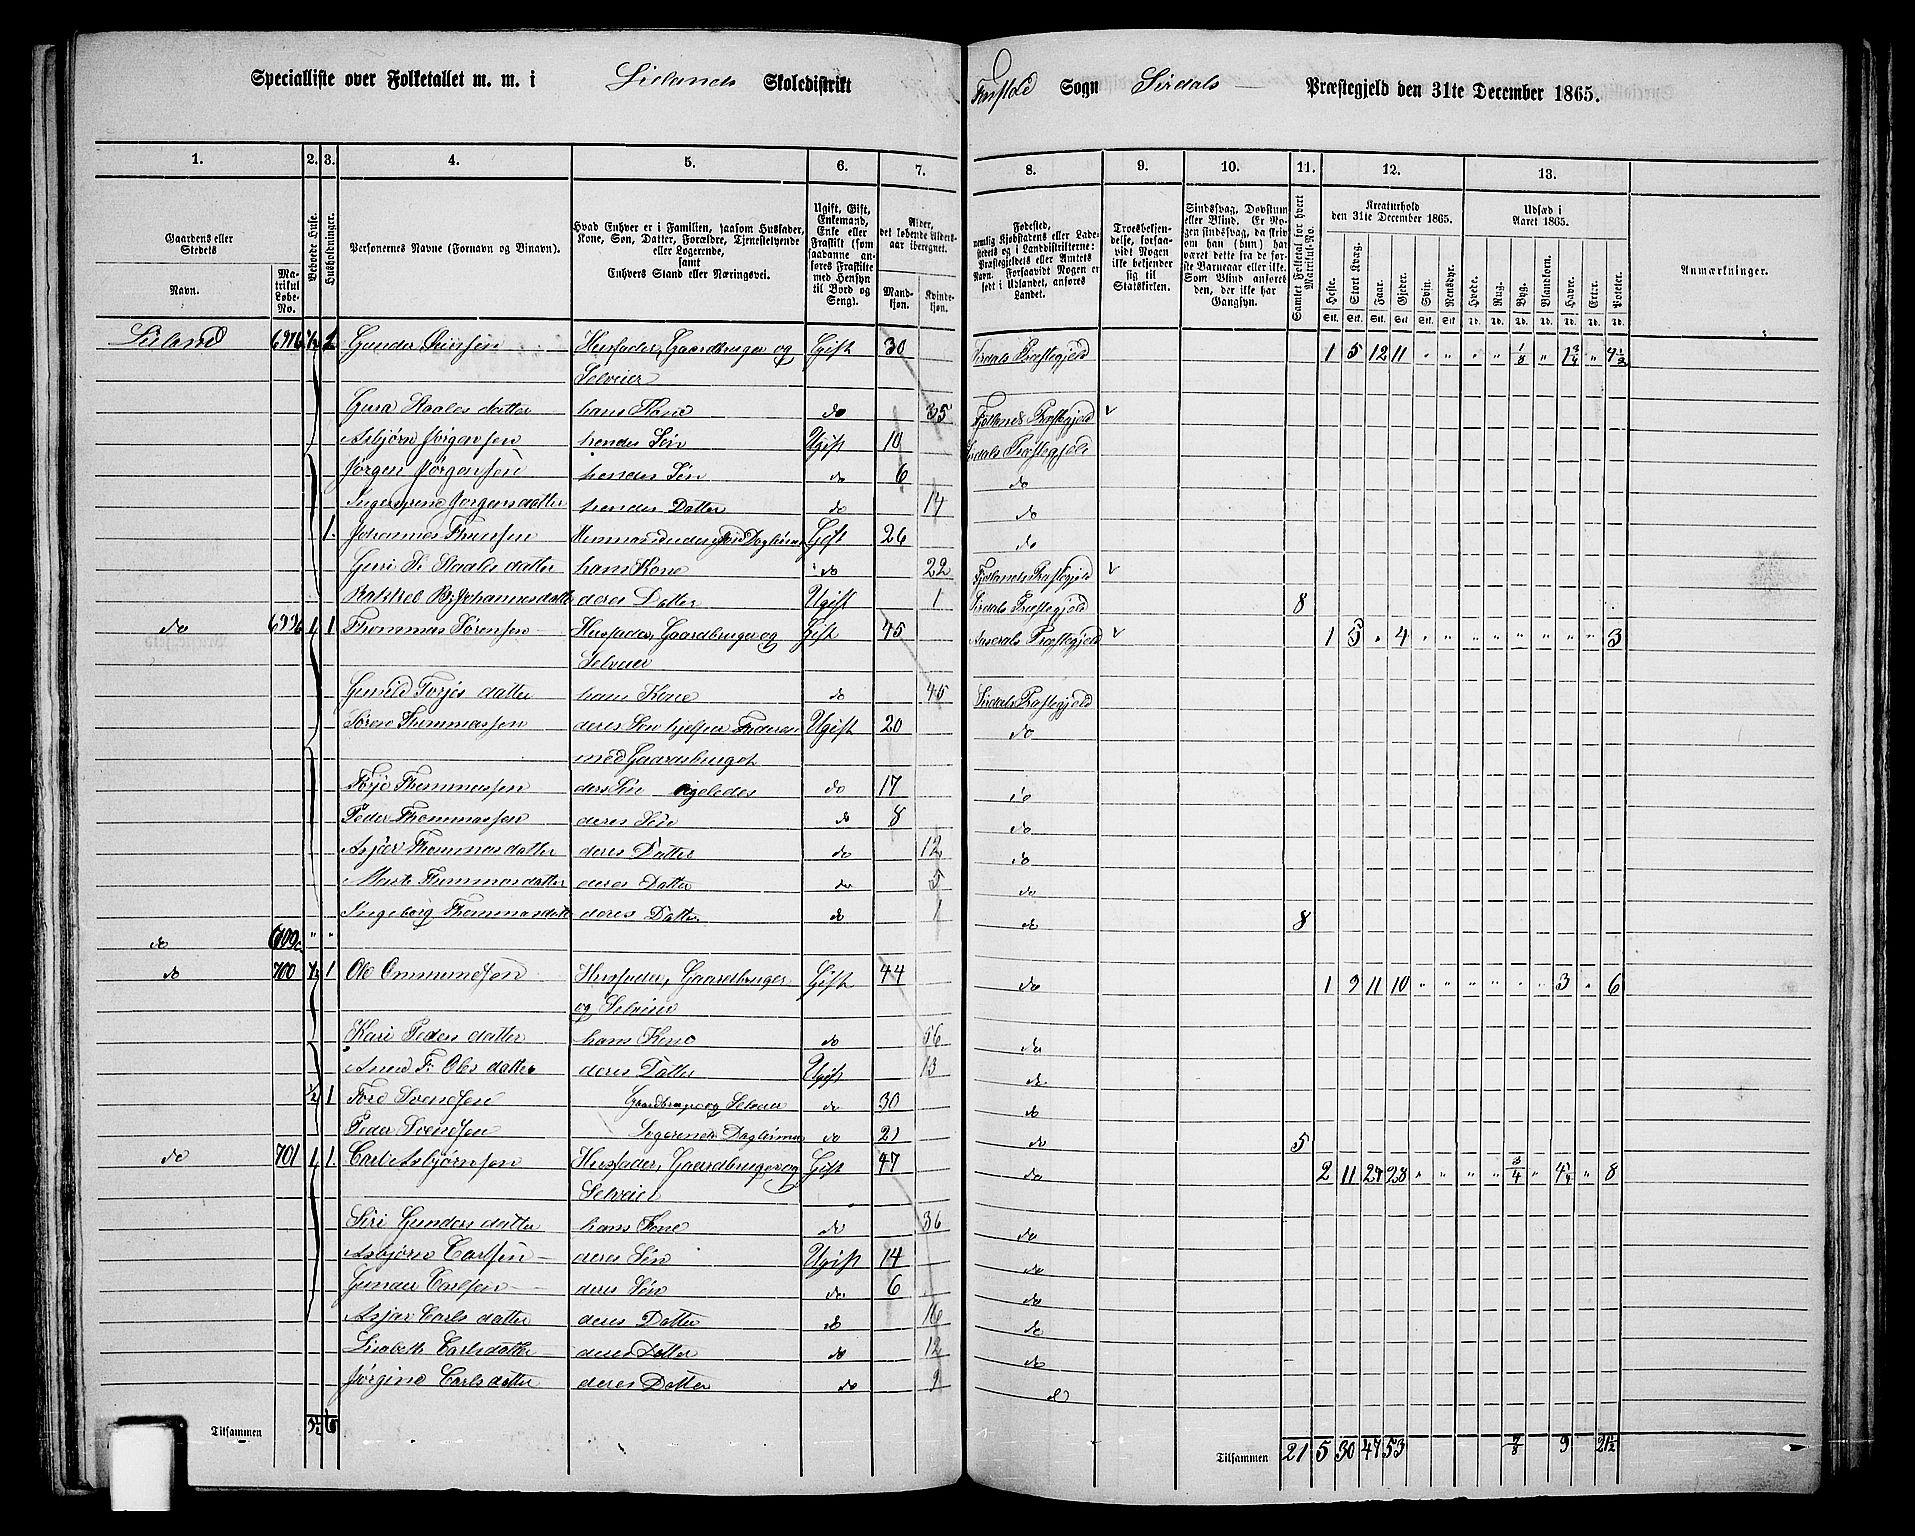 Specialliste over Folketallet m. m. i Lielands Skoledistrikt
Sogn Sirdals Præstegjeld den 31te December 1865.
1. 2. 3. 4. 5. 6. 7. 8. 9. 10. 11. 12. 13.
Gaardens eller Stedets
Navn.
Matrikul Løbe-No.
Bebodde Huse.
Husholdninger.
Personernes Navne (Fornavn og Binavn).
Hvad Enhver er i Familien, saasom Husfader, Kone, Søn, Datter, Forældre, Tjenestetyende eller Logerende, samt Enhvers Stand eller Næringsvei.
Ugift, Gift, Enkemand, Enke eller Fraskilt (som saadanne anføres Fraskilte med Hensyn til Bord og Seng).
Alder, det løbende Alders-aar iberegnet.
Mand-kjøn.
Kvinde-kjøn.
Fødested,
Troesbekjendelse, forsaavidt Nogen ikke bekjender sig til Statskirken.
Sindssvag, Døvstum eller Blind. Er Nogen sindssvag, da skrives om han (hun) har været dette fra de første Barneaar eller ikke. Som Blind anføres den, der ikke har Gangsyn.
Samlet Folketal for hvert Matrikul-No.
Kreaturhold den 31te December 1865.
Heste. Stort Kvæg. Faar. Gjeder. Svin. Rensdyr.
Udsæd i Aaret 1865.
Hvede. Rug. Byg. Blandkorn. Havre. Erter. Poteter.
Anmærkninger.
Gunder Husfader, Gaardbruger og Gift 30 Sirdals Præstegjeld 1 5 12 11 " " " " 1/8 " 1 3/4 " 4 1/2
Selveier
Staales datter hans Kone do 35 Fjotlands Præstegjeld
Asbjørn Jørgensen hendes Søn Ugift 10 Sirdals Præstegjeld
Jørgen Jørgensen hendes Søn do 6 do
Jørgensdatter hendes Datter do 14 do
1. Johannes Gift 26 do
Staales datter hans Kone do 22 Fjotlands Præstegjeld
Johannesdatter deres Datter Ugift 1 Sirdals Præstegjeld 8
do 1 1 Thommas Sørensen Husfader, Gaardbruger og Gift 45 Aaserals Præstegjeld 1 5 " 4 " " " " " " " " 3
Selveier
Gunild Torjes datter hans Kone do 45 Sirdals Præstegjeld
Søren Thommassen deres Søn hjelper Faderen Ugift 20 do
med Gaardsbruget
Torje Thommassen deres Søn ligeledes do 17 do
Peder Thommassen deres Søn do 8 do
Asjær Thommasdatter deres Datter do 12 do
Marte Thommasdatter deres Datter do 5 do
Ingeborg Thommasdatter deres Datter do 1 do 8
do " "
do 700 1/2 1 Ole Ommundsen Husfader, Gaardbruger Gift 44 do 1 9 11 10 " " " " " " 3 " 6
og Selveier
Kari Peders datter hans Kone do 56 do
Anne Ols datter deres Datter Ugift 13 do
1/2 1 Tore Svendsen Gaardbruger og Selveier do 30 do
Peder Svendsen Logerende Daglønner do 21 do 5
do 701 1 1. Carl Asbjørnsen Husfader, Gaardbruger og Gift 47 do 2 11 24 28 " " " " 3/4 " 4 1/4 " 8
Selveier
Siri Gunders datter hans Kone do 36 do
Asbjørn Carlsen deres Søn Ugift 14 do
Gunder Carlsen deres Søn do 6 do
Asjær Carls datter deres Datter do 16 do
Lisabeth Carlsdatter deres Datter do 12 do
Jørgine Carls datter deres Datter do 2 do
Tilsammen 3 1/2 6
Tilsammen 21 5 30 47 53 7/8 9 21 1/2